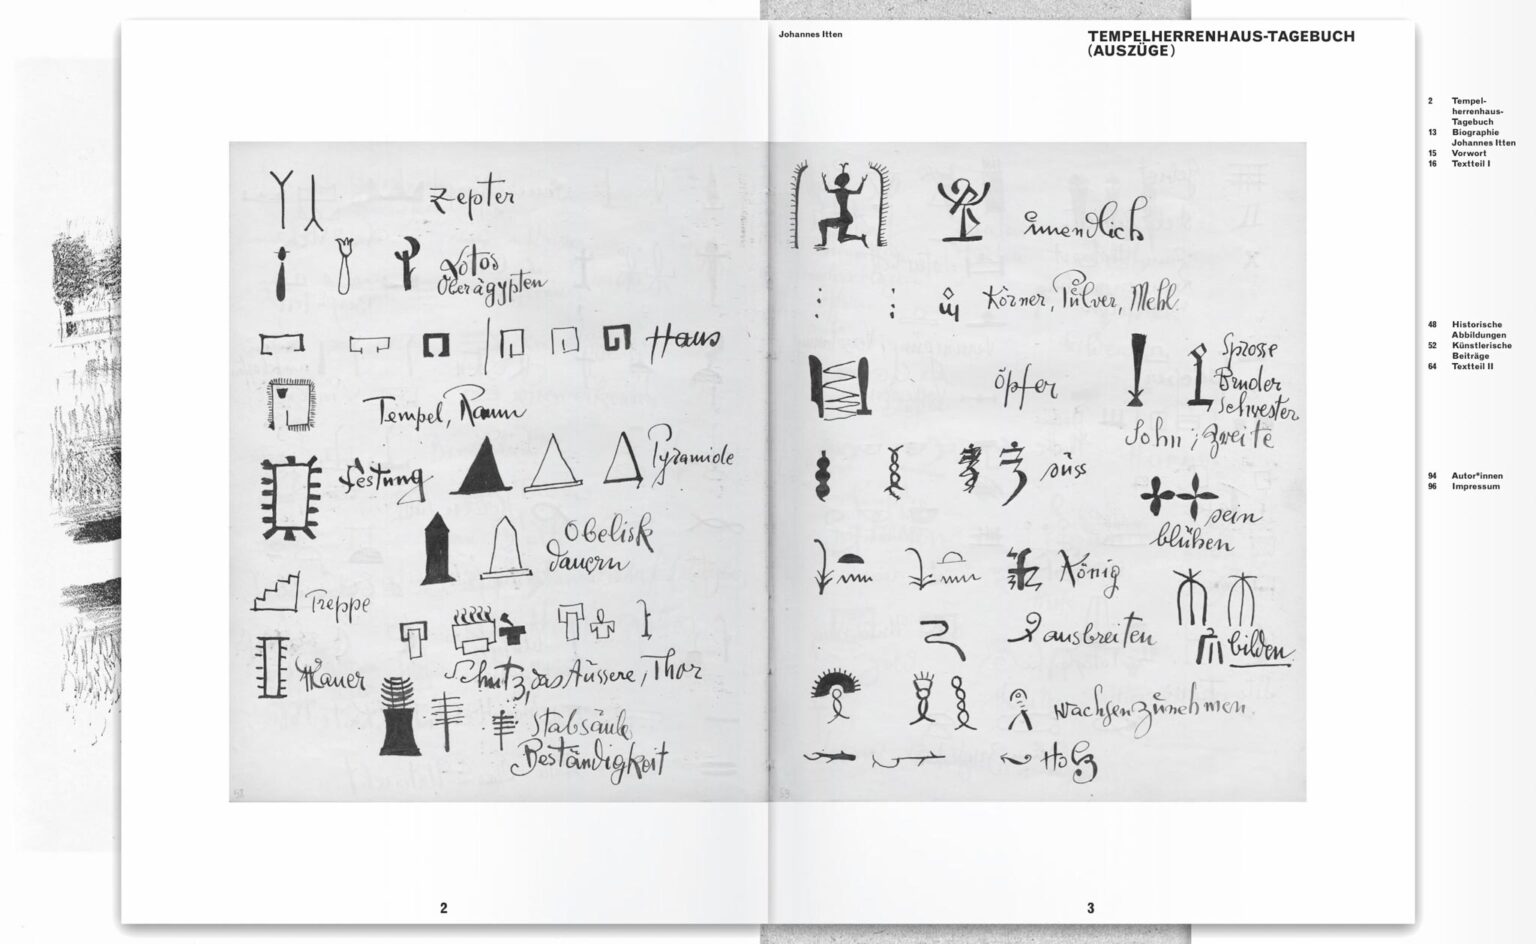 Johannes Itten
TEMPELHERRENHAUS-TAGEBUCH
(AUSZÜGE)
Zepter
Lotos
Oberägypten
Haus
Tempel, Raum
Festung
Pyramide
Obelisk
dauern
Treppe
Mauer
Schutz, das Äussere, Thor
Stabsäule
Beständigkeit
58
2
unendlich
Körner, Pulver, Mehl
Opfer
Sprosse
Bruder
Schwester
Sohn; Zweite
süss
sein
blühen
König
ausbreiten
bilden
Wachsen zunehmen.
Holz
59
3
2 Tempel-
herrenhaus-
Tagebuch
13 Biographie
Johannes Itten
15 Vorwort
16 Textteil I
48 Historische
Abbildungen
52 Künstlerische
Beiträge
64 Textteil II
94 Autor*innen
96 Impressum